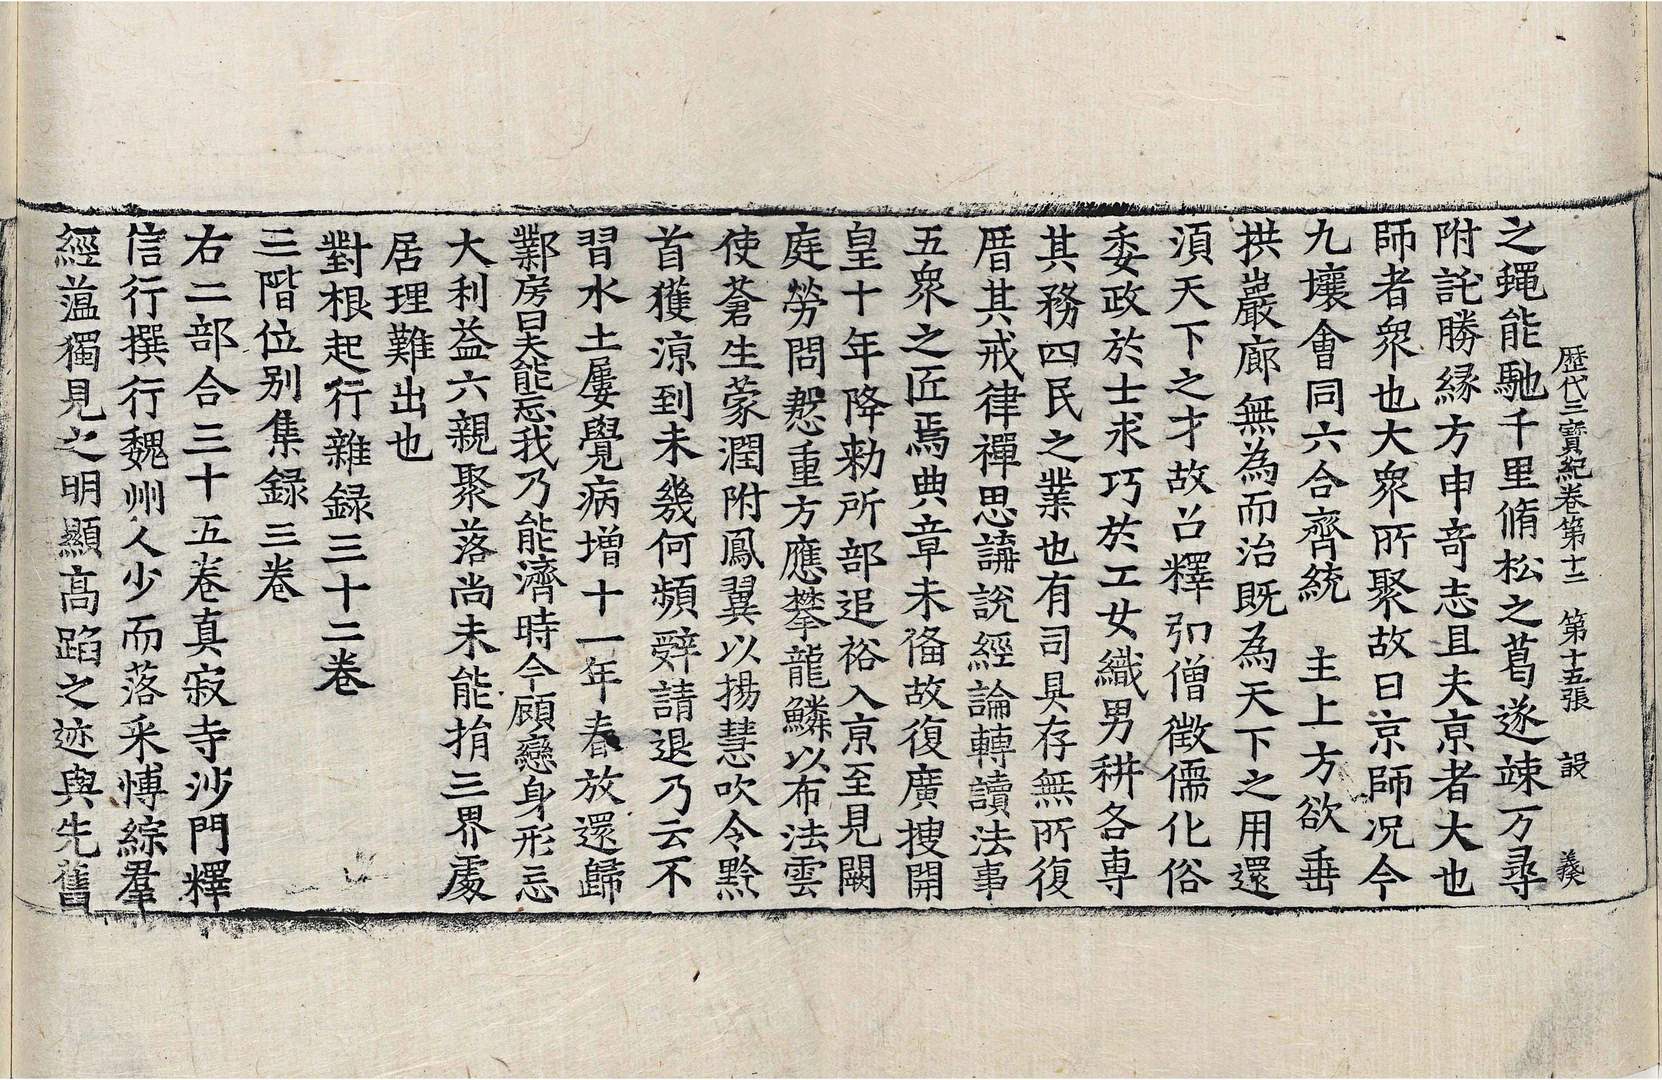 歷代三寶紀卷第十二　第十五張　設　義
之蠅能馳千里脩松之葛遂竦万尋
附託勝縁方申竒志且夫亰者大也
師者衆也大衆所聚故曰亰師况今
九壤會同六合齊統　主上方欲垂
拱巖廊無為而治既為天下之用還
湏天下之才故召釋引僧徵儒化俗
委政於士求巧於工女織男耕各専
其務四民之業也有司具存無所復
厝其戒律禪思講說經論轉讀法事
五衆之匠焉典章未俻故復廣搜開
皇十年降勑所部追裕入亰至見闕
庭勞問慇重方應攀龍鱗以布法雲
使蒼生蒙潤附鳳翼以揚慧吹令黔
首獲凉到未幾何頻辤請退乃云不
習水土屢覺病增十一年春放還歸
鄴房曰夫能忘我乃能濟時今顧戀身形忘
大利益六親聚落尚未能捐三界處
居理難出也
對根起行雜録三十二卷
三階位别集録三卷
右二部合三十五卷真寂寺沙門釋
信行撰行魏州人少而落采愽綜羣
經蕰獨見之明顯髙蹈之迹與先舊